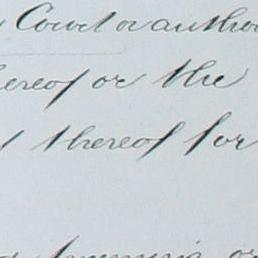 Court or autho
hereof or the
thereof for
or